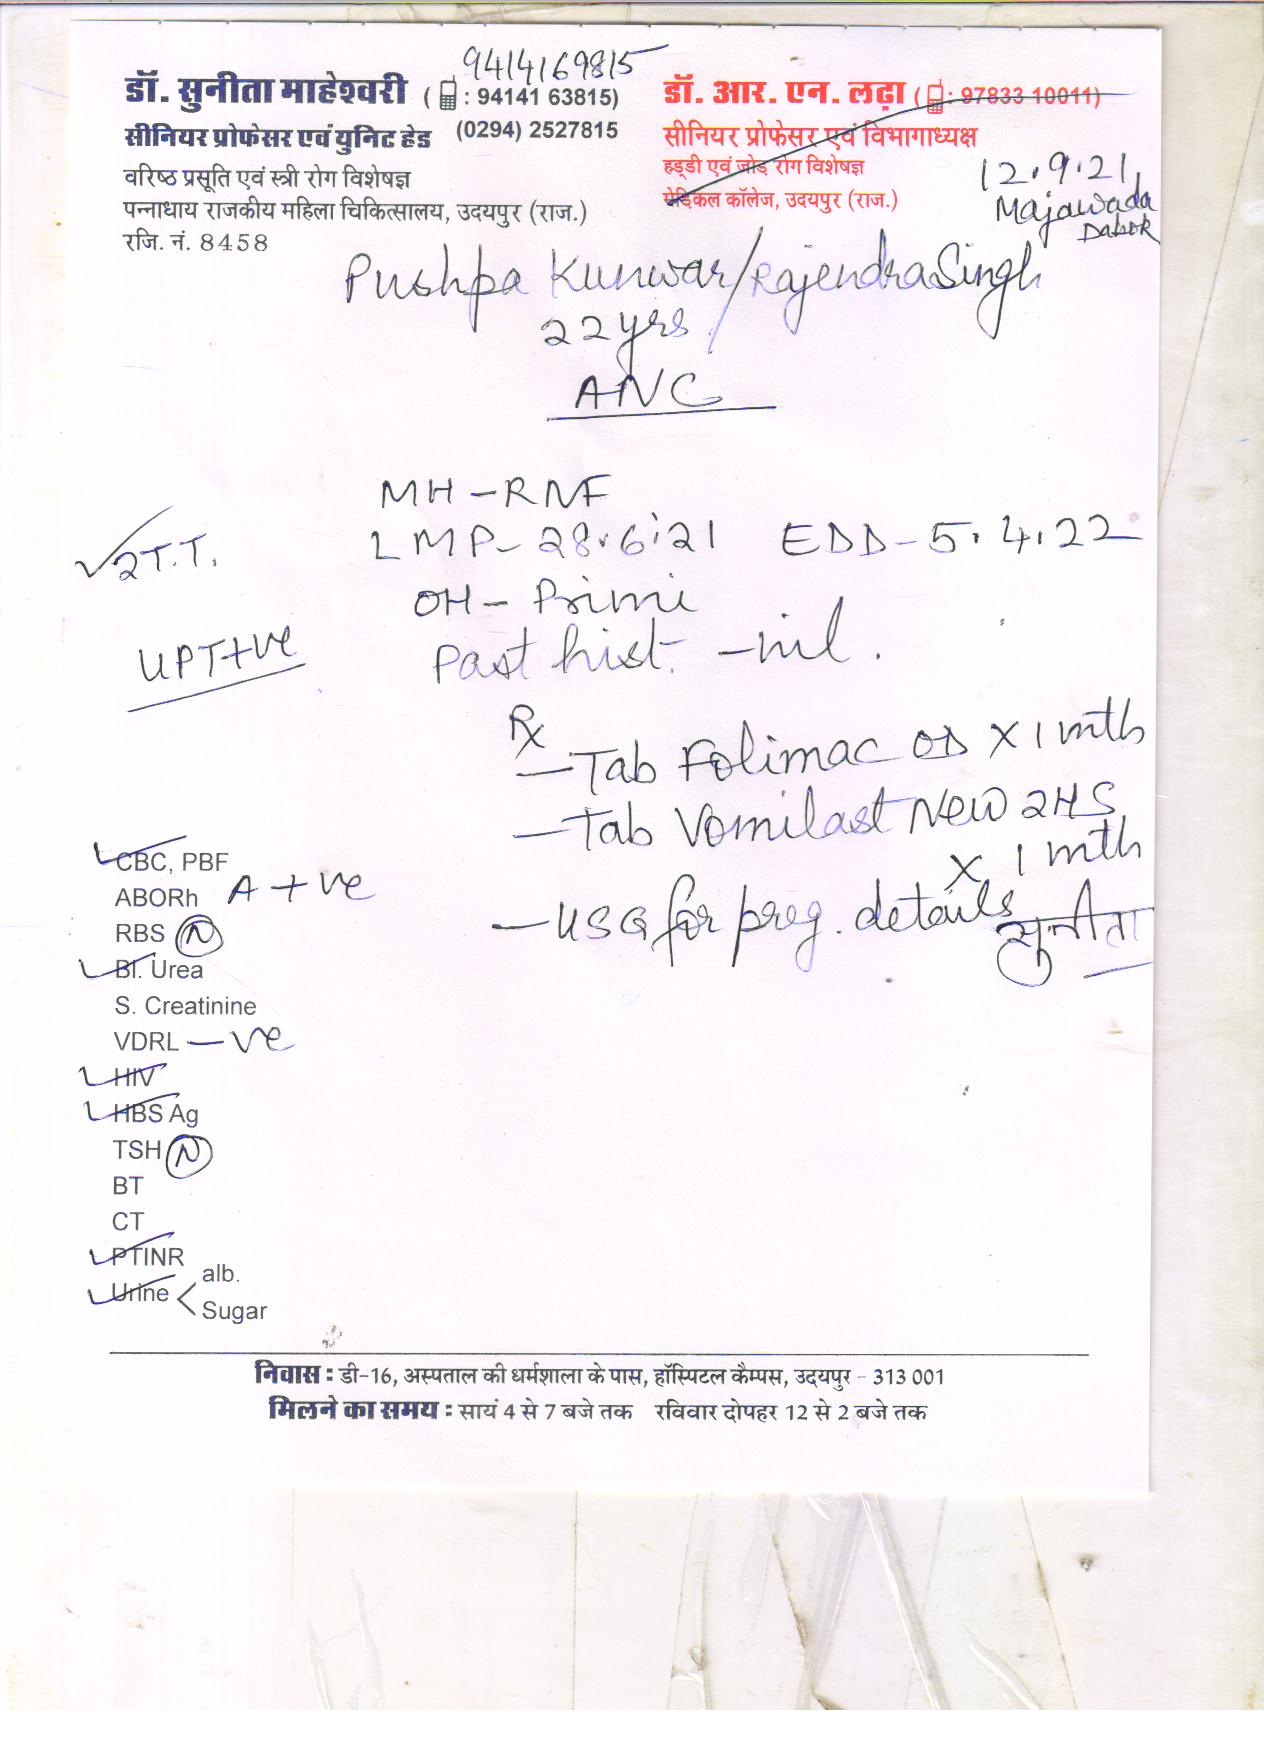 9414169815
डॉ. सुनीता माहेश्वरी ( : 94141 63815)
सीनियर प्रोफेसर एवं युनिट हेड (0294) 2527815
वरिष्ठ प्रसूति एवं स्त्री रोग विशेषज्ञ
पन्नाधाय राजकीय महिला चिकित्सालय, उदयपुर (राज.)
रजि. नं. 8458
डॉ. आर. एन. लढ़ा ( : 97833 10011)
सीनियर प्रोफेसर एवं विभागाध्यक्ष
हड्डी एवं जोड़ रोग विशेषज्ञ
मेडिकल कॉलेज, उदयपुर (राज.)
12.9.21
Majawada
Dabok
Pushpa Kunwar/Rajendra Singh
22 yrs
ANC
MH - RNF
LMP - 28.6.21 EDD - 5.4.22
OH - Primi
Past hist. - nil.
2T.T.
UPT+ve
Rx
- Tab Folimac OD X 1 mth
- Tab Vomilast New 2HS
X 1 mth
- USG for preg. details
सुनीता
CBC, PBF
ABORh A +ve
RBS N
Bl. Urea
S. Creatinine
VDRL -ve
HIV
HBS Ag
TSH N
BT
CT
PTINR
Urine < alb.
Sugar
निवास : डी-16, अस्पताल की धर्मशाला के पास, हॉस्पिटल कैम्पस, उदयपुर - 313 001
मिलने का समय : सायं 4 से 7 बजे तक रविवार दोपहर 12 से 2 बजे तक